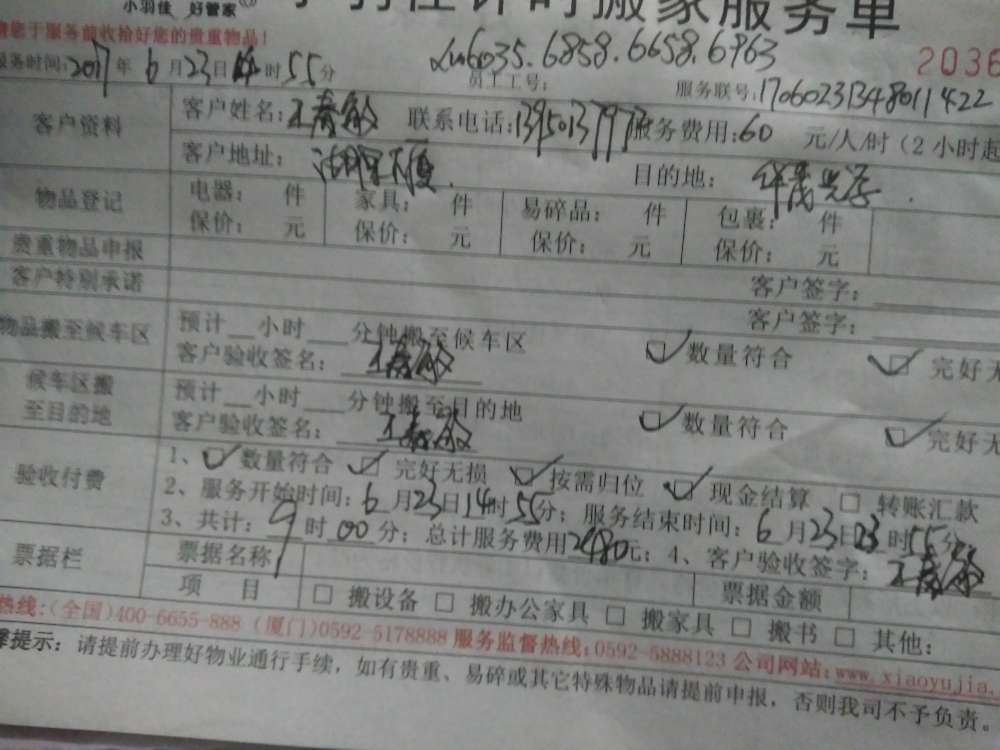 小羽佳 好管家
计时搬家服务单
请您于服务前收拾好您的贵重物品!
服务时间:2017年6月23日14时55分
6035.6858.6658.6963
员工工号:
服务联号:17060231348011422
2036
客户资料
客户姓名:王春敏 联系电话: 服务费用:60 元/人/时(2小时起
客户地址: 目的地:
物品登记
电器: 件 家具: 件 易碎品: 件 包裹: 件
保价: 元 保价: 元 保价: 元 保价: 元
贵重物品申报
客户签字:
客户特别承诺
客户签字:
物品搬至候车区
预计__小时___分钟搬至候车区
客户验收签名:王春敏
数量符合 完好无
候车区搬至目的地
预计__小时___分钟搬至目的地
客户验收签名:王春敏
数量符合 完好无
验收付费
1、数量符合 完好无损 按需归位 现金结算 转账汇款
2、服务开始时间:6月23日14时55分;服务结束时间:6月23日23时55分
3、共计:9时00分;总计服务费用2480元;4、客户验收签字:王春敏
票据栏
票据名称 票据金额
项 目
搬设备 搬办公家具 搬家具 搬书 其他:
热线:(全国)400-6655-888 (厦门)0592-5178888 服务监督热线:0592-5888123 公司网站:www.xiaoyujia.
馨提示:请提前办理好物业通行手续,如有贵重、易碎或其它特殊物品请提前申报,否则我司不予负责。